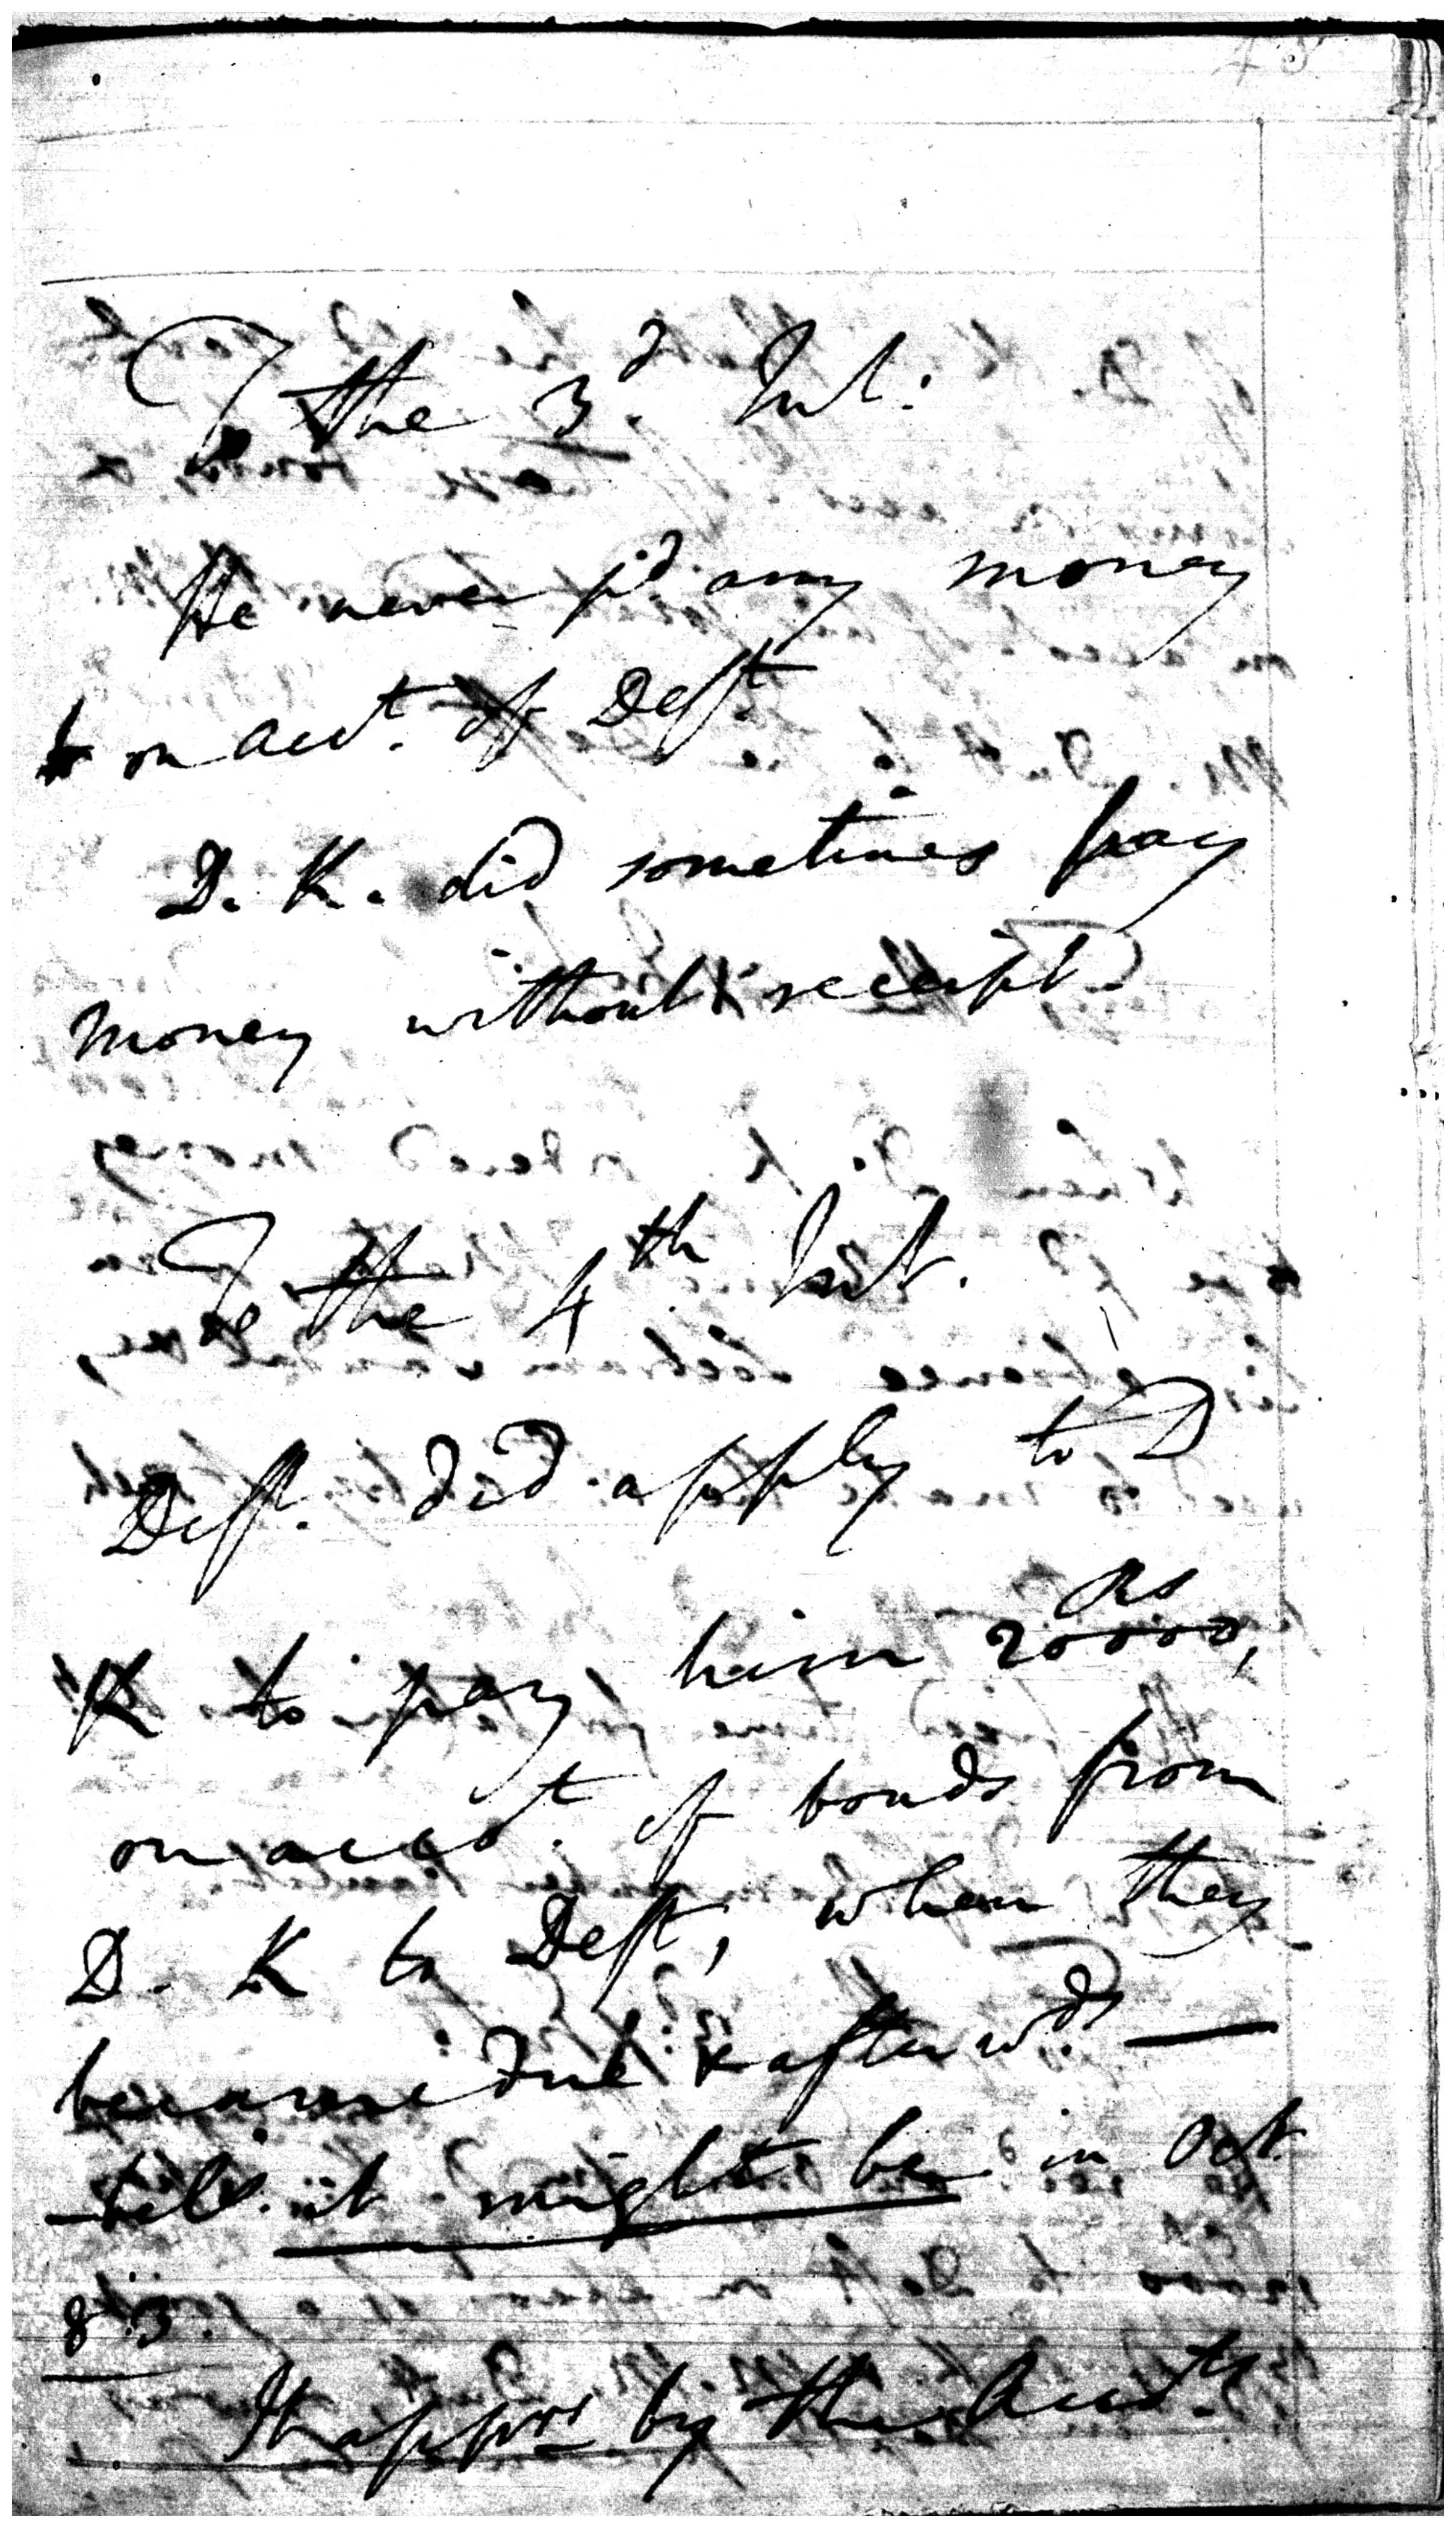 To the 3.d Int:
He never p.d any money
on acct. of Deft
D. K. did sometimes pay
money without receipt
To the 4th Int.
Deft. did apply to D
K to pay him Rs 20000,
on acct. of bonds from
D. K to Deft, when they
became due & afterw.ds —
till it might be in Oct
8.3.
It apprs by the Accts.